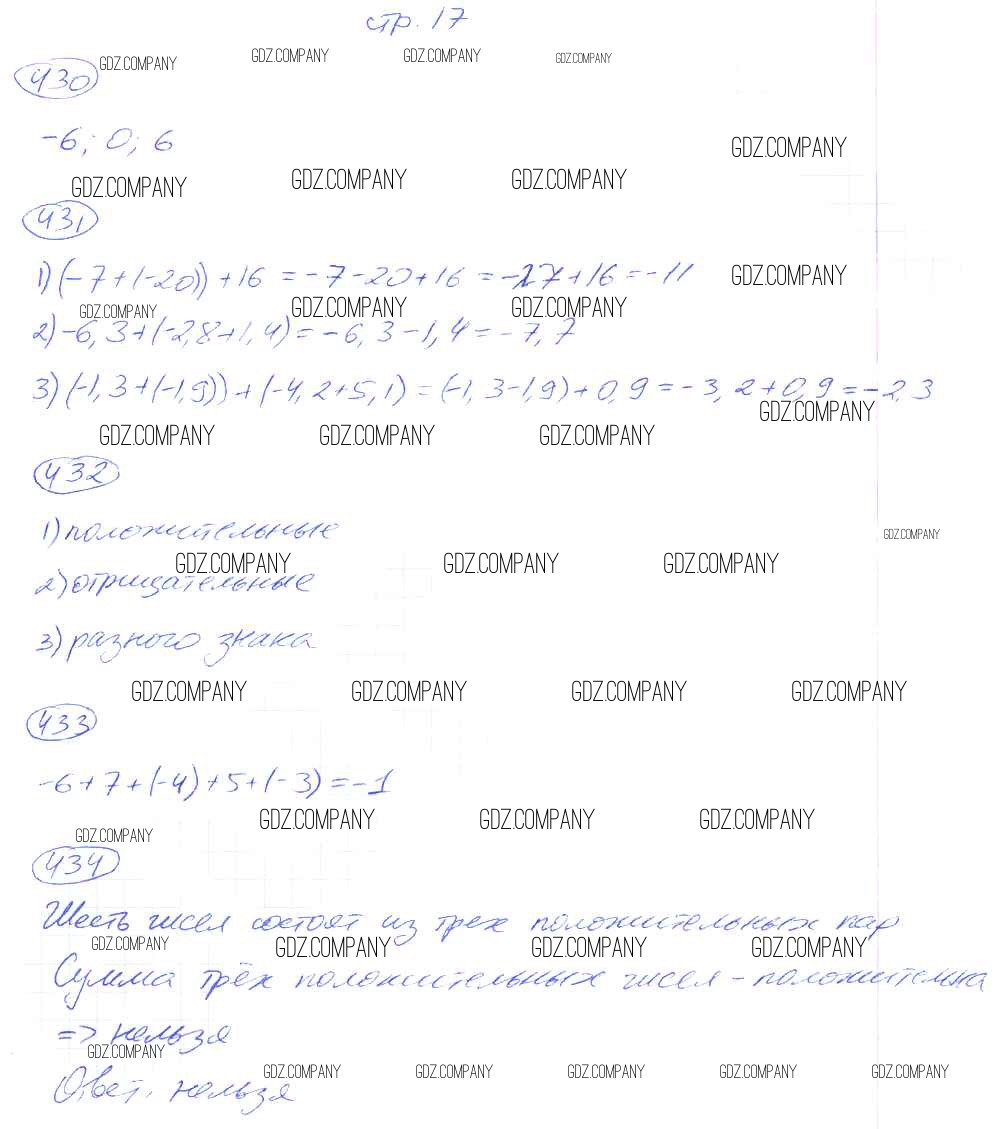 стр. 17
GDZ.COMPANY GDZ.COMPANY GDZ.COMPANY GDZ.COMPANY
430
-6; 0; 6
GDZ.COMPANY
GDZ.COMPANY GDZ.COMPANY GDZ.COMPANY
431
1) (-7+(-20))+16 = -7-20+16 = -27+16 = -11
GDZ.COMPANY
GDZ.COMPANY GDZ.COMPANY GDZ.COMPANY
2) -6,3+(-2,8+1,4) = -6,3-1,4 = -7,7
3) (-1,3+(-1,9))+(-4,2+5,1) = (-1,3-1,9)+0,9 = -3,2+0,9 = -2,3
GDZ.COMPANY
GDZ.COMPANY GDZ.COMPANY GDZ.COMPANY
432
1) положительные
GDZ.COMPANY
GDZ.COMPANY GDZ.COMPANY GDZ.COMPANY
2) отрицательные
3) разного знака
GDZ.COMPANY GDZ.COMPANY GDZ.COMPANY GDZ.COMPANY
433
-6+7+(-4)+5+(-3)=-1
GDZ.COMPANY GDZ.COMPANY GDZ.COMPANY
GDZ.COMPANY
434
Шесть чисел состоят из трех положительных пар
GDZ.COMPANY GDZ.COMPANY GDZ.COMPANY GDZ.COMPANY
Сумма трёх положительных чисел - положительна
=> нельзя
GDZ.COMPANY
GDZ.COMPANY GDZ.COMPANY GDZ.COMPANY GDZ.COMPANY GDZ.COMPANY
Ответ. нельзя